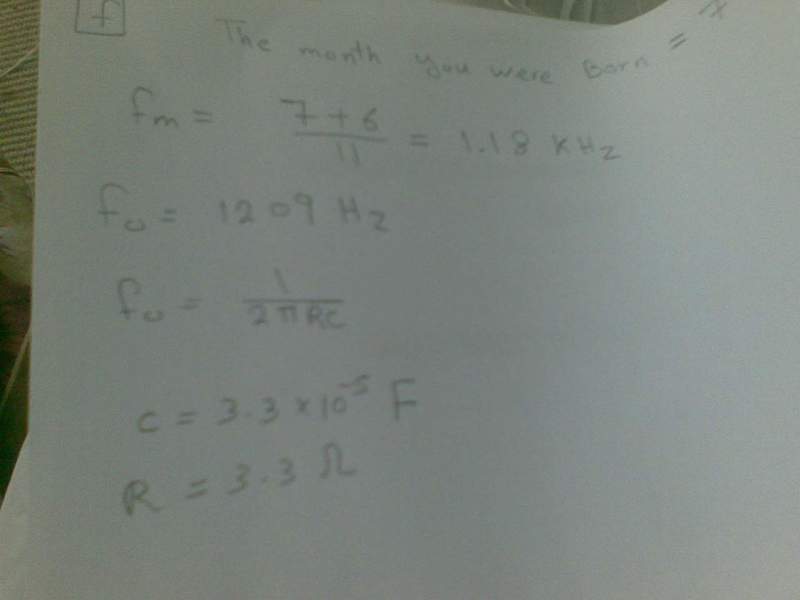 f
The month you were Born =
fm = 7 + 6 / 11 = 1.18 KHz
fo = 1209 Hz
fo = 1 / 2πRC
C = 3.3 × 10⁻⁵ F
R = 3.3 Ω